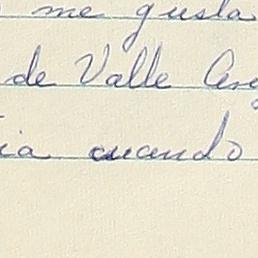 me gusta
de Valle
cuando